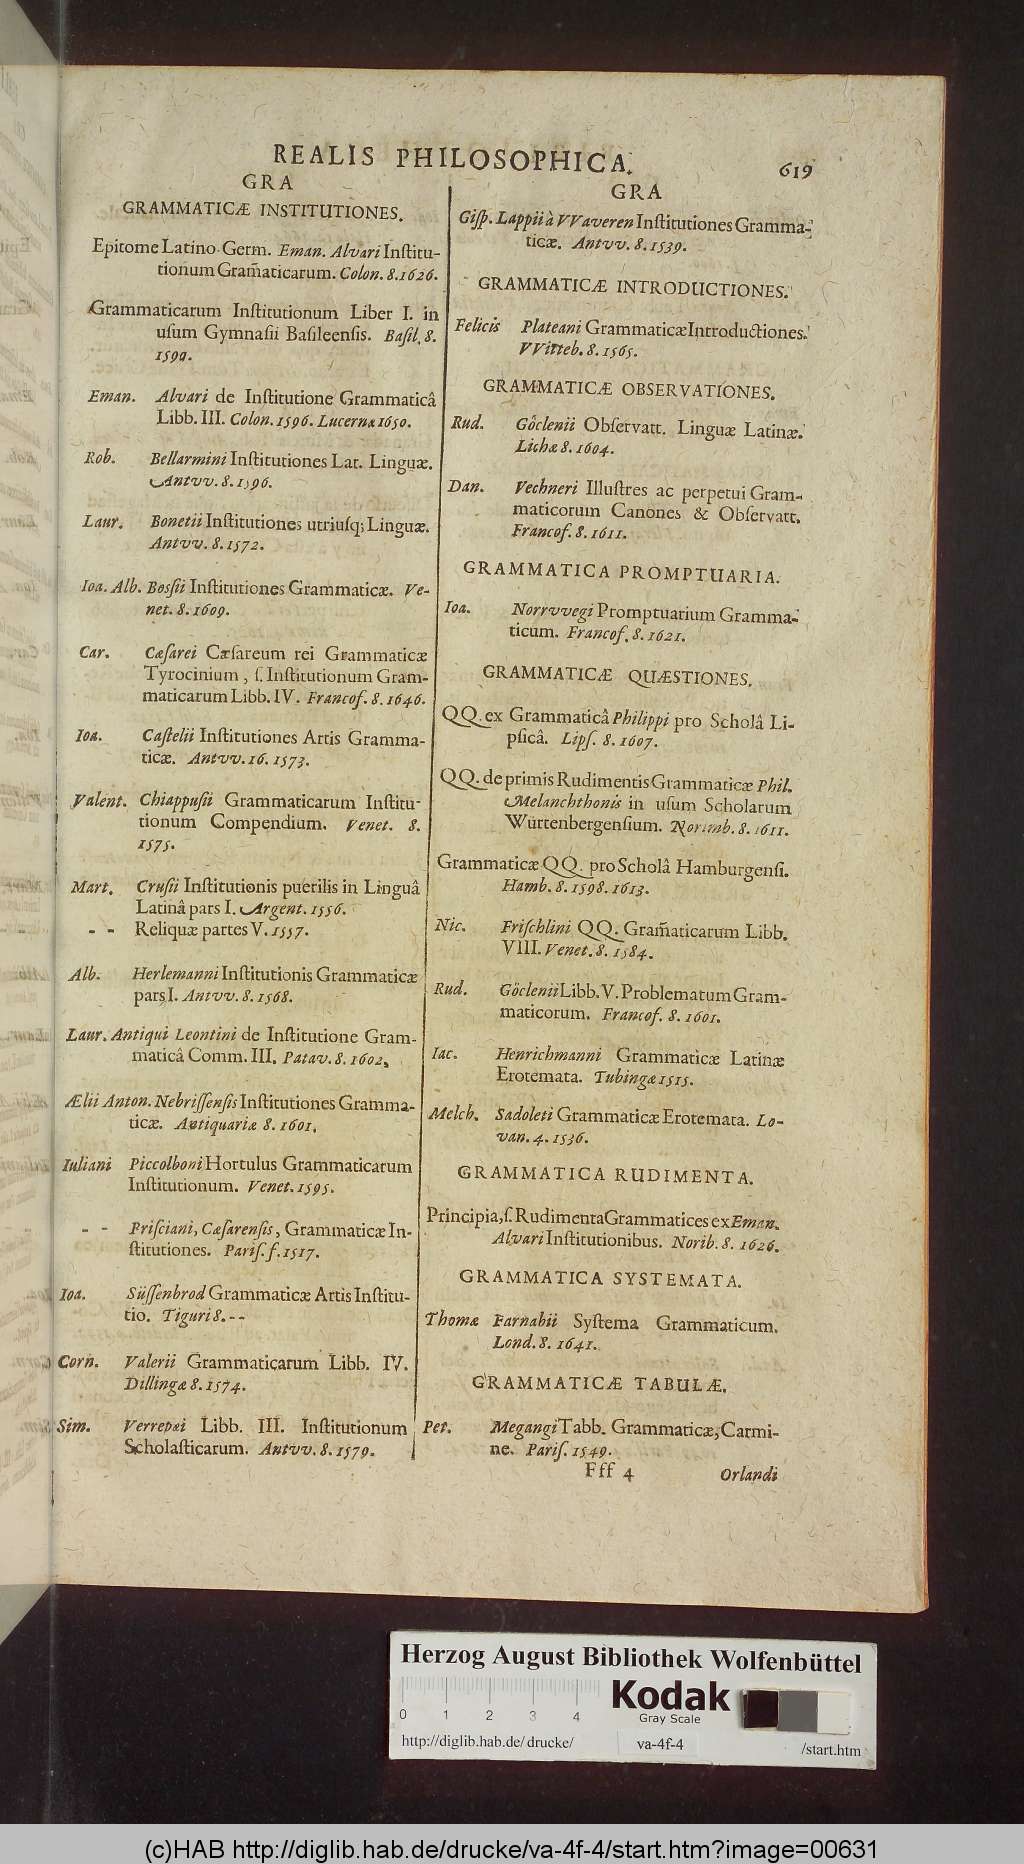 REALIS PHILOSOPHICA. 619
GRA
GRAMMATICÆ INSTITUTIONES.
Epitome Latino-Germ. Eman. Alvari Institu-
tionum Gram̃aticarum. Colon. 8. 1626.
Grammaticarum Institutionum Liber I. in
usum Gymnasii Basileensis. Basil. 8.
1590.
Eman. Alvari de Institutione Grammaticâ
Libb. III. Colon. 1596. Lucernæ 1650.
Rob. Bellarmini Institutiones Lat. Linguæ.
Antvv. 8. 1596.
Laur. Bonetii Institutiones utriusq; Linguæ.
Antvv. 8. 1572.
Ioa. Alb. Bossii Institutiones Grammaticæ. Ve-
net. 8. 1609.
Car. Cæsarei Cæsareum rei Grammaticæ
Tyrocinium, s. Institutionum Gram-
maticarum Libb. IV. Francof. 8. 1646.
Ioa. Castelii Institutiones Artis Gramma-
ticæ. Antvv. 16. 1573.
Valent. Chiappusii Grammaticarum Institu-
tionum Compendium. Venet. 8.
1575.
Mart. Crusii Institutionis puerilis in Linguâ
Latinâ pars I. Argent. 1556.
- - Reliquæ partes V. 1557.
Alb. Herlemanni Institutionis Grammaticæ
pars I. Antvv. 8. 1568.
Laur. Antiqui Leontini de Institutione Gram-
maticâ Comm. III. Patav. 8. 1602.
Ælii Anton. Nebrissensis Institutiones Gramma-
ticæ. Antiquariæ 8. 1601.
Iuliani Piccolboni Hortulus Grammaticarum
Institutionum. Venet. 1595.
- - Prisciani, Cæsarensis, Grammaticæ In-
stitutiones. Paris. f. 1517.
Ioa. Süssenbrod Grammaticæ Artis Institu-
tio. Tiguri 8. - -
Corn. Valerii Grammaticarum Libb. IV.
Dillingæ 8. 1574.
Sim. Verrepæi Libb. III. Institutionum
Scholasticarum. Antvv. 8. 1579.
GRA
Gisp. Lappii à VVaveren Institutiones Gramma-
ticæ. Antvv. 8. 1539.
GRAMMATICÆ INTRODUCTIONES.
Felicis Plateani Grammaticæ Introductiones.
VVitteb. 8. 1565.
GRAMMATICÆ OBSERVATIONES.
Rud. Göclenii Observatt. Linguæ Latinæ.
Lichæ 8. 1604.
Dan. Vechneri Illustres ac perpetui Gram-
maticorum Canones & Observatt.
Francof. 8. 1611.
GRAMMATICA PROMPTUARIA.
Ioa. Norrvvegi Promptuarium Gramma-
ticum. Francof. 8. 1621.
GRAMMATICÆ QUÆSTIONES.
QQ. ex Grammaticâ Philippi pro Scholâ Li-
psicâ. Lips. 8. 1607.
QQ. de primis Rudimentis Grammaticæ Phil.
Melanchthonis in usum Scholarum
Würtenbergensium. Norimb. 8. 1611.
Grammaticæ QQ. pro Scholâ Hamburgensi.
Hamb. 8. 1598. 1613.
Nic. Frischlini QQ. Gram̃aticarum Libb.
VIII. Venet. 8. 1584.
Rud. Göclenii Libb. V. Problematum Gram-
maticorum. Francof. 8. 1601.
Iac. Henrichmanni Grammaticæ Latinæ
Erotemata. Tubingæ 1515.
Melch. Sadoleti Grammaticæ Erotemata. Lo-
van. 4. 1536.
GRAMMATICA RUDIMENTA.
Principia, s. Rudimenta Grammatices ex Eman.
Alvari Institutionibus. Norib. 8. 1626.
GRAMMATICA SYSTEMATA.
Thomæ Farnabii Systema Grammaticum.
Lond. 8. 1641.
GRAMMATICÆ TABULÆ.
Pet. Megangi Tabb. Grammaticæ, Carmi-
ne. Paris. 1549.
Fff 4 Orlandi
Herzog August Bibliothek Wolfenbüttel
0 1 2 3 4
Kodak
Gray Scale
http://diglib.hab.de/drucke/ va-4f-4 /start.htm
(c)HAB http://diglib.hab.de/drucke/va-4f-4/start.htm?image=00631